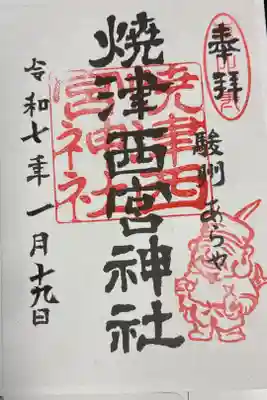 奉拝
駿州 あらや
焼津西宮神社
焼津西宮神社
令和七年一月十九日